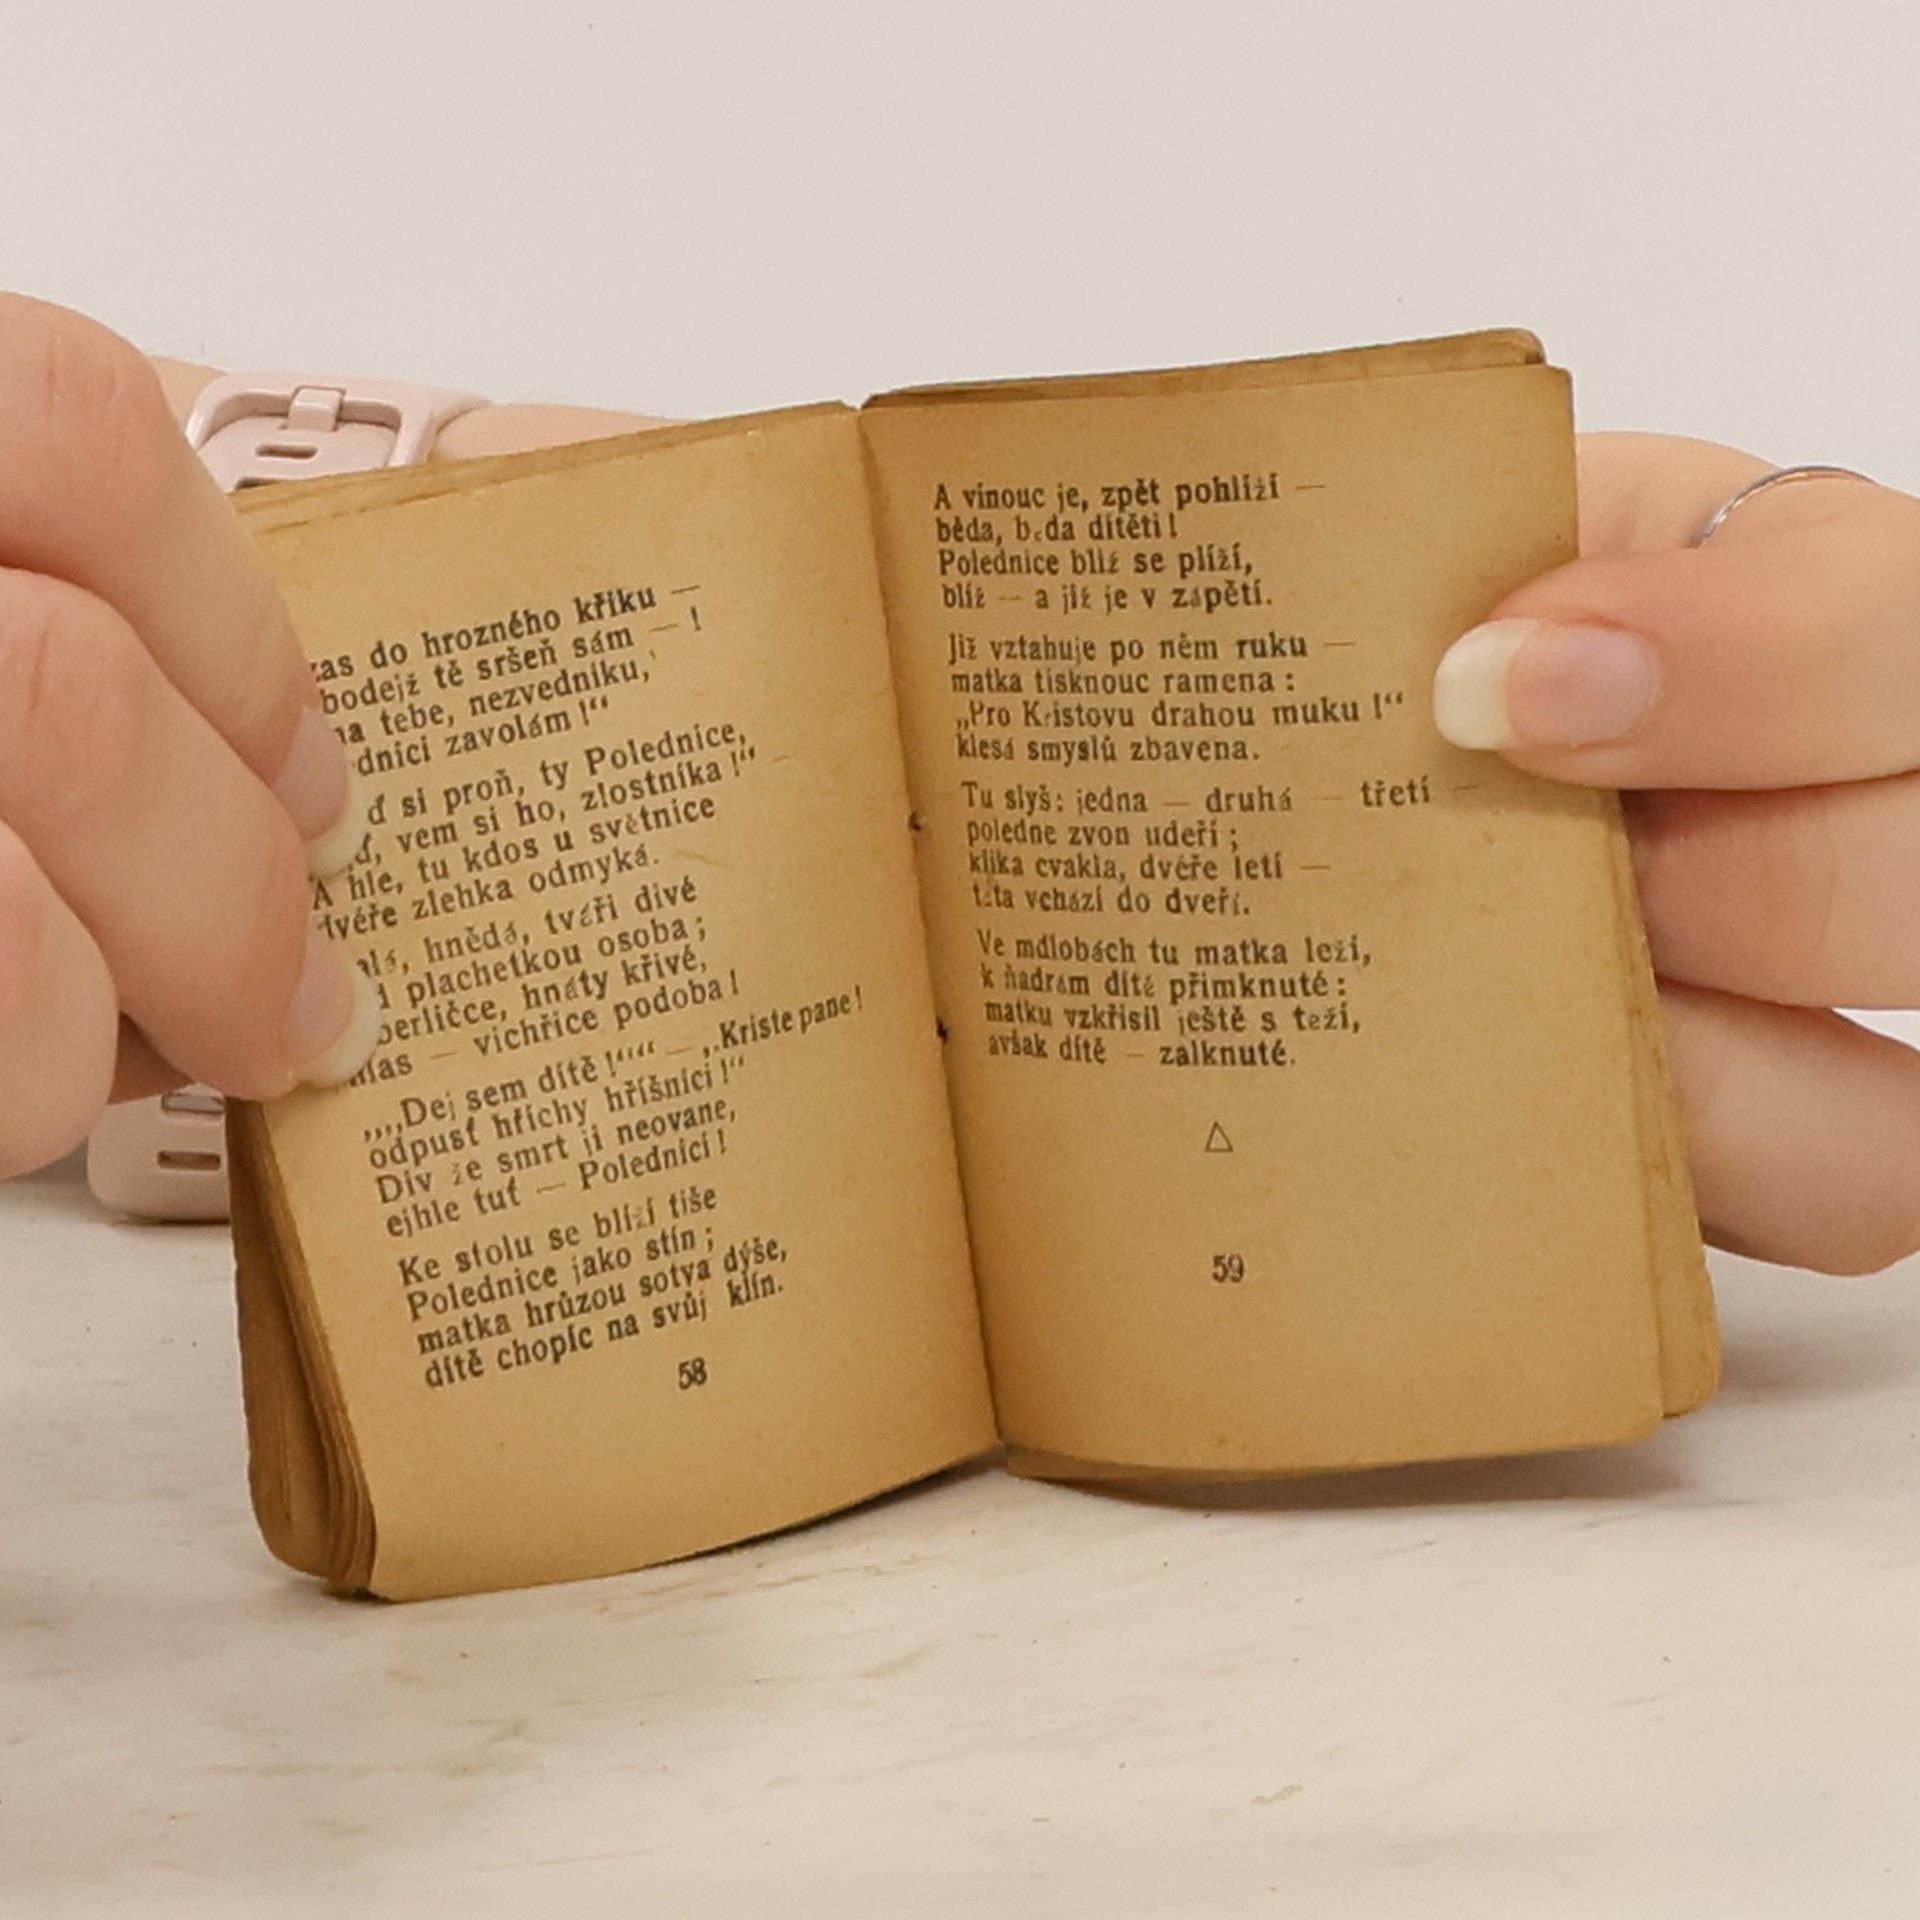 zas do hrozného křiku —
bodejž tě sršeň sám — !
na tebe, nezvedníku,
zavolám !“
si proň, ty Polednice,
vem si ho, zlostníka !“
A hle, tu kdos u světnice
dvéře zlehka odmyká.
hnědá, tváři divé
plachetkou osoba ;
hnáty křivé,
— vichřice podoba !
„„Dej sem dítě !““ — „Kriste pane !
odpusť hříchy hříšnici !“
Div že smrt ji neovane,
ejhle tuť — Polednici !
Ke stolu se blíží tiše
Polednice jako stín ;
matka hrůzou sotva dýše,
dítě chopíc na svůj klín.
58
A vinouc je, zpět pohlíží —
běda, běda dítěti !
Polednice blíž se plíží,
blíž — a již je v zápětí.
Již vztahuje po něm ruku —
matka tisknouc ramena :
„Pro Kristovu drahou muku !“
klesá smyslů zbavena.
Tu slyš: jedna — druhá — třetí —
poledne zvon udeří ;
klika cvakla, dvéře letí —
táta vchází do dveří.
Ve mdlobách tu matka leží,
k ňadrám dítě přimknuté :
matku vzkřísil ještě s těží,
avšak dítě — zalknuté.
59